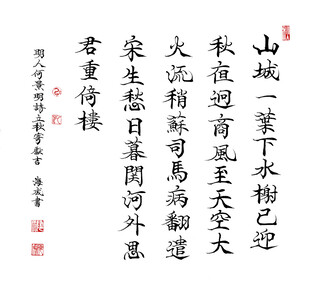 山城一葉下水榭已迎
秋夜迥商風至天空大
火流稍蘇司馬病翻遣
宋生愁日暮関河外思
君重倚樓
明人何景明詩立秋寄献吉 海成書